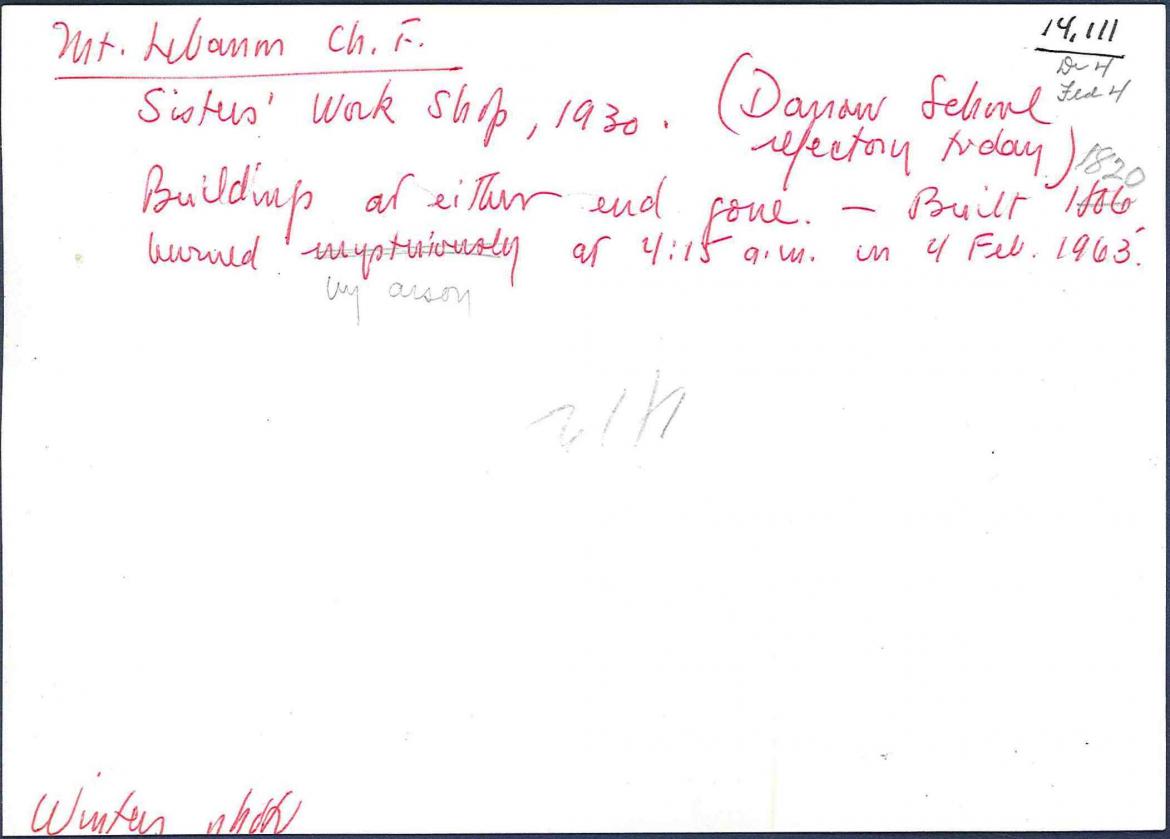 Mt. Lebanon Ch. F.
14,111
Dr 4
Fed 4
Sisters' Work Shop, 1930. (Darrow School
refectory today)
1820
Buildings at either end gone. — Built 1806
burned mysteriously at 4:15 a.m. on 4 Feb. 1963.
by arson
Winter photo